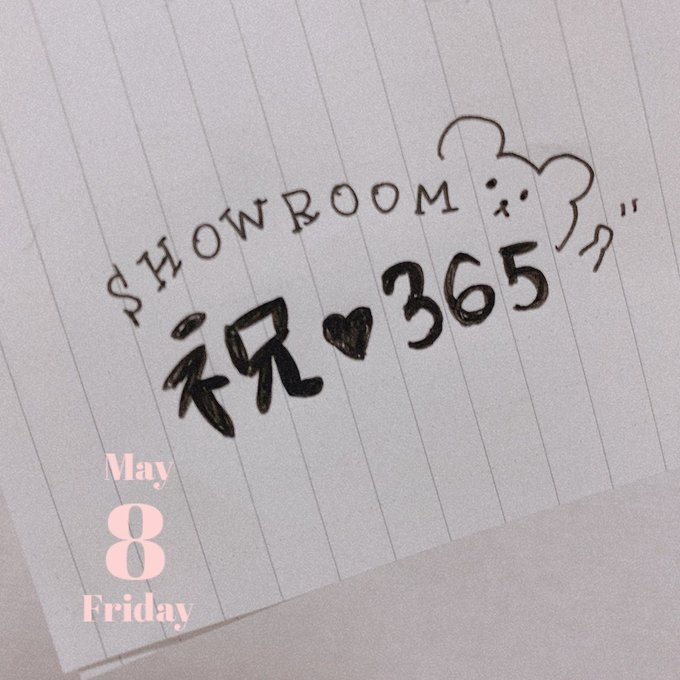 SHOWROOM
祝♥365
May
8
Friday